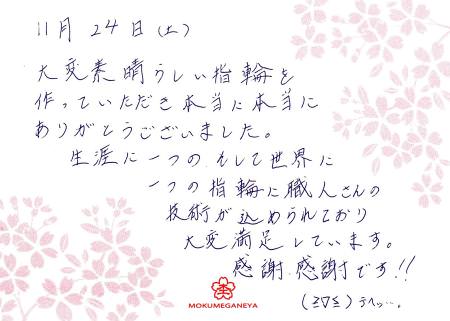 11月24日(土)
大変素晴らしい指輪を
作っていただき本当に本当に
ありがとうございました。
生涯に一つの、そして世界に
一つの指輪に職人さんの
技術が込められており
大変満足しています。
感謝、感謝です!!
(≧∇≦)
MOKUMEGANEYA